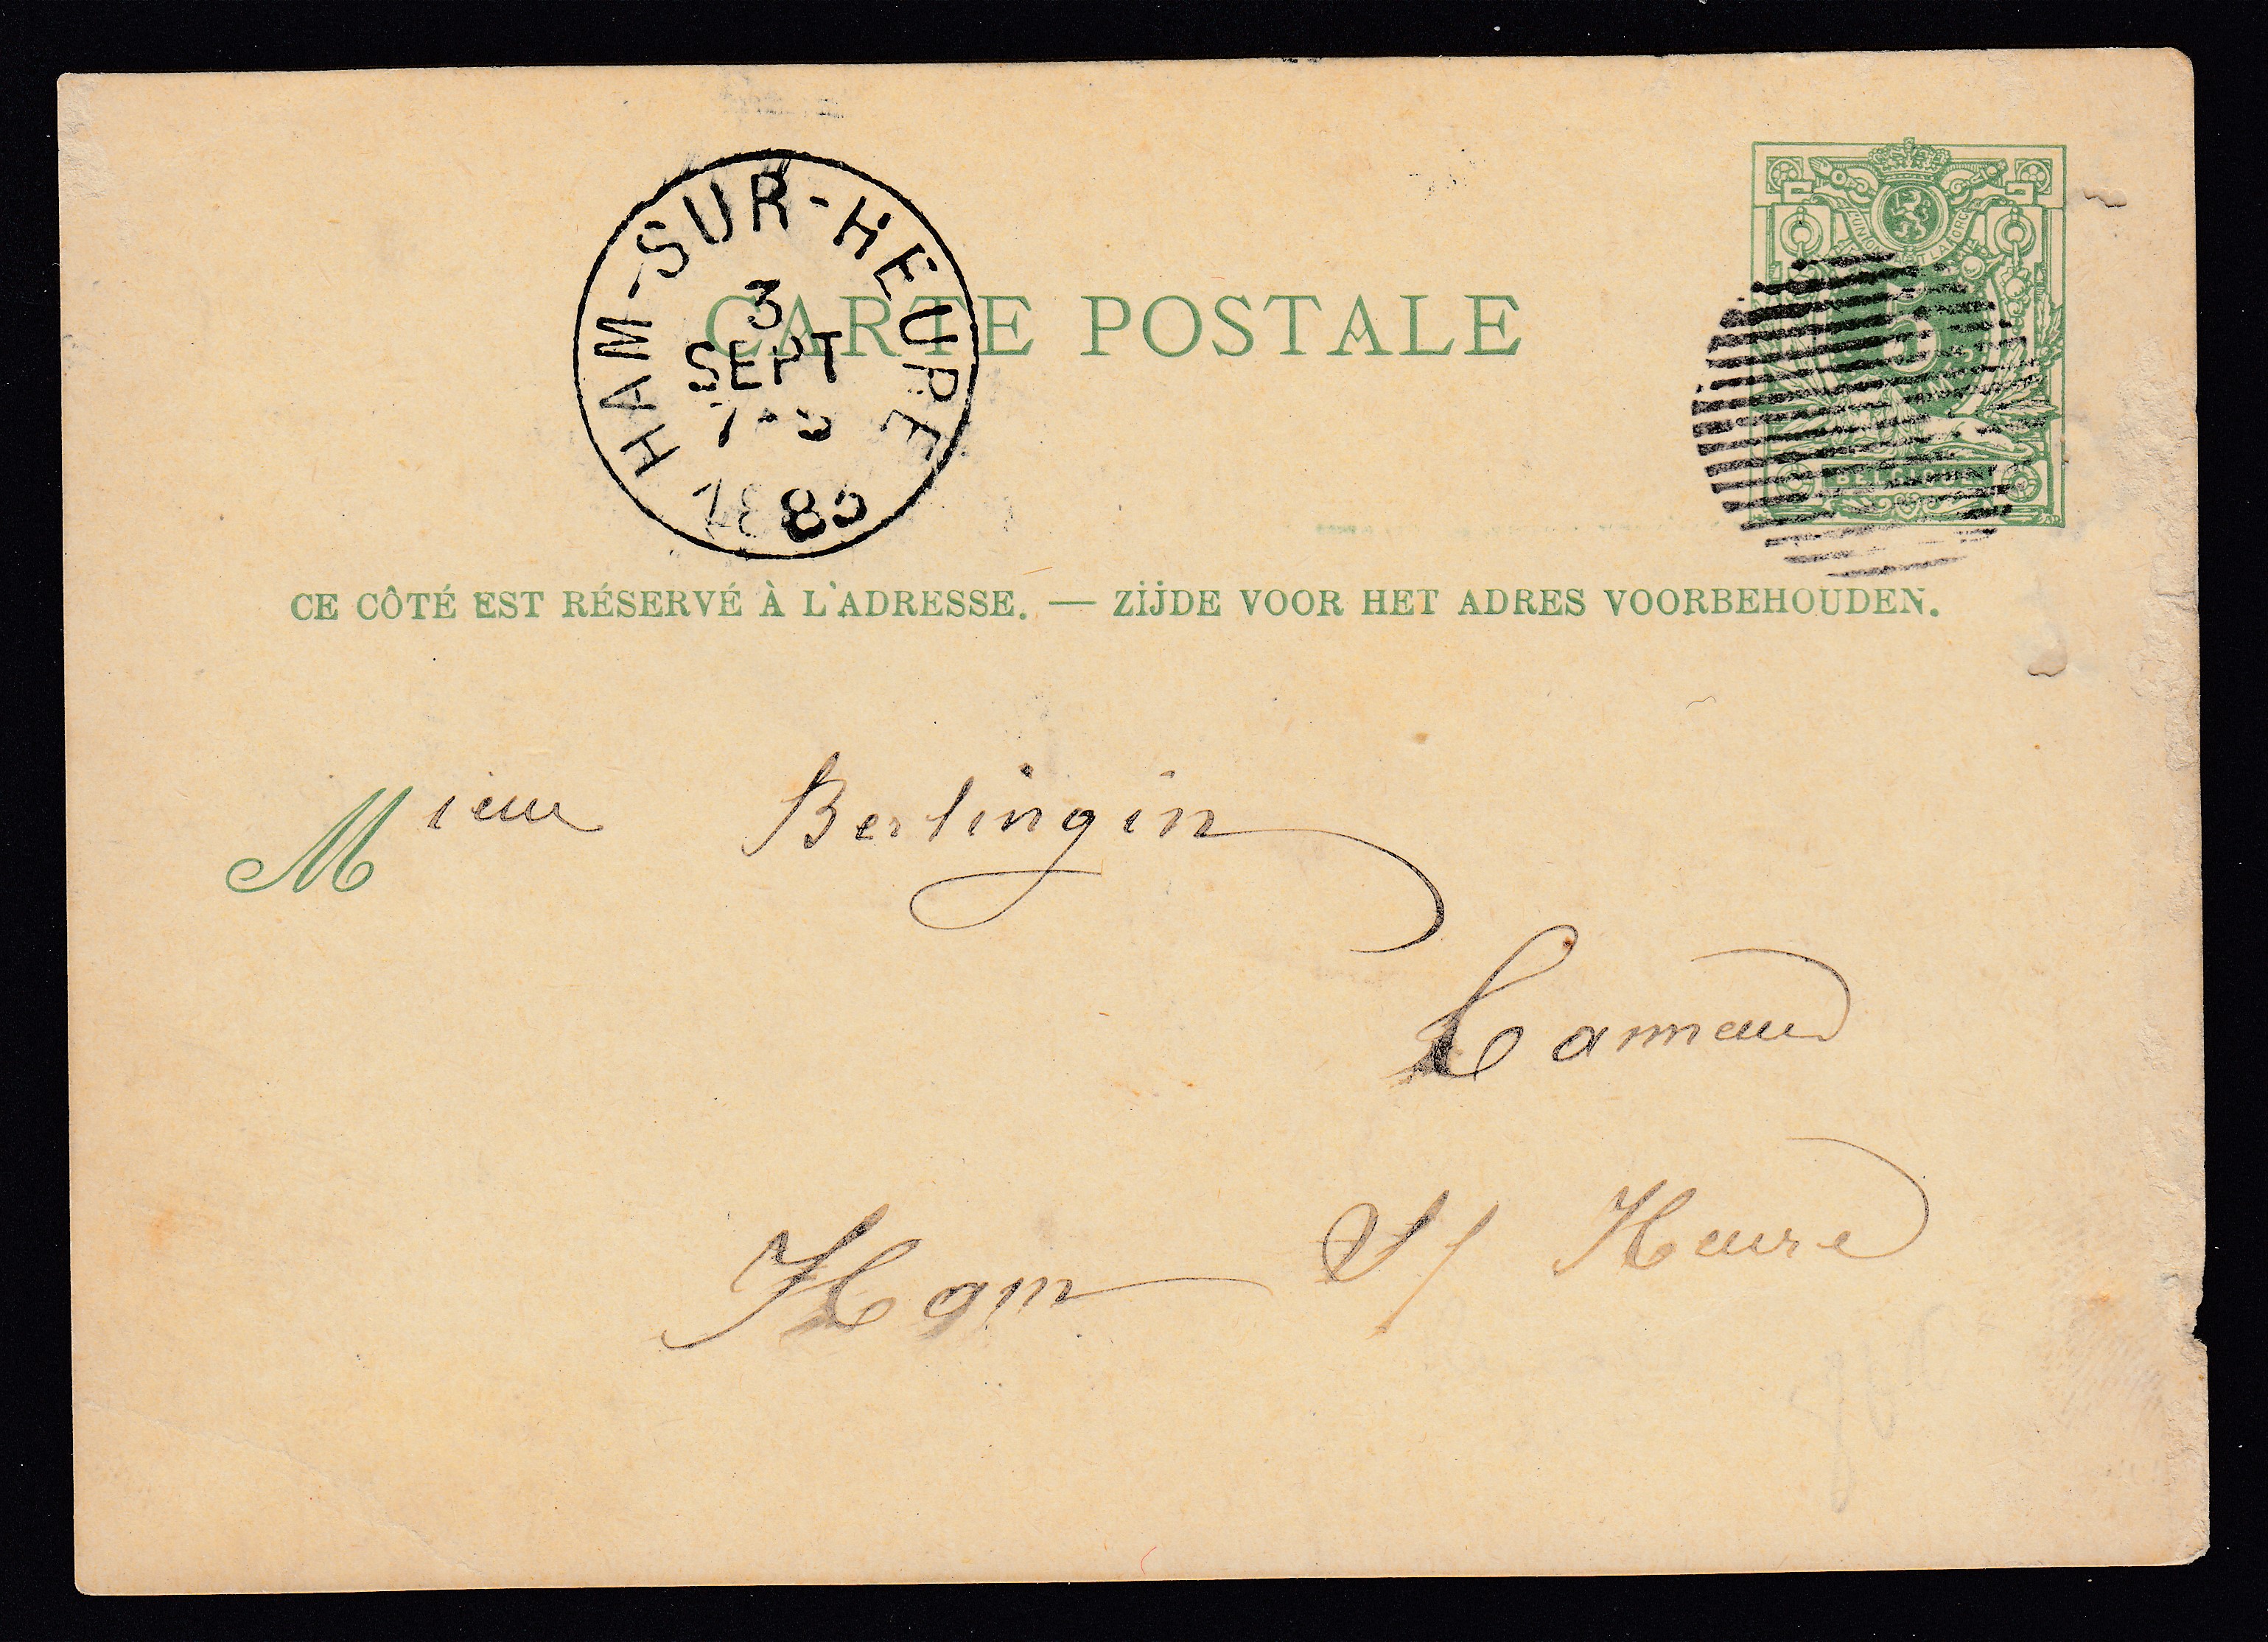 HAM-SUR-HEURE
3
SEPT
1885
CARTE POSTALE
L'UNION FAIT LA FORCE
5
BELGIQUE
CE CÔTÉ EST RÉSERVÉ À L'ADRESSE. — ZIJDE VOOR HET ADRES VOORBEHOUDEN.
Mieur Berlingin
Ham S/ Heure